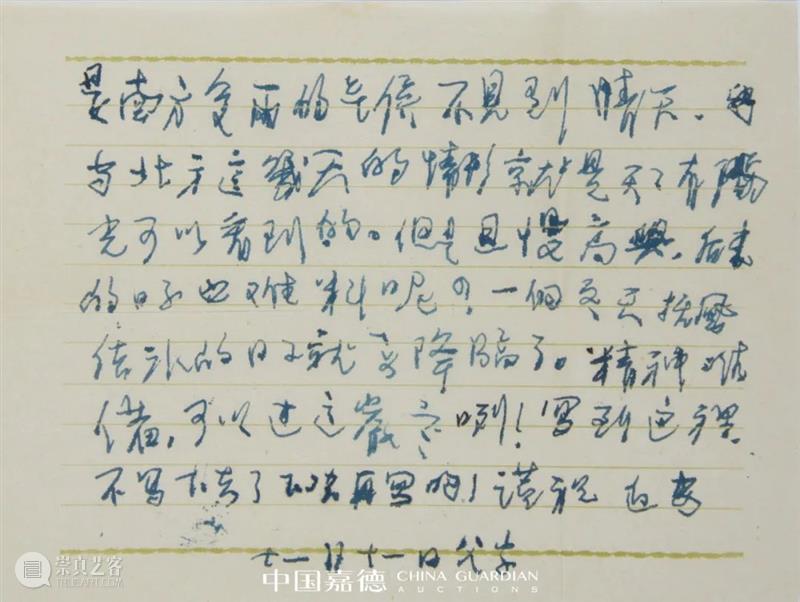 是南方多雨的气候不见到晴天。
与北方这几天的情形就是天天有阳
光可以看到的。但是且慢高兴。后来
的日子也难料呢？一个冬天
结冰的日子就要降临了。精神
可以过这严冬咧！写到这里
不写下去了 再写吧！谨祝 近安
十一月十一日
崇真艺客
中国嘉德 CHINA GUARDIAN
AUCTIONS